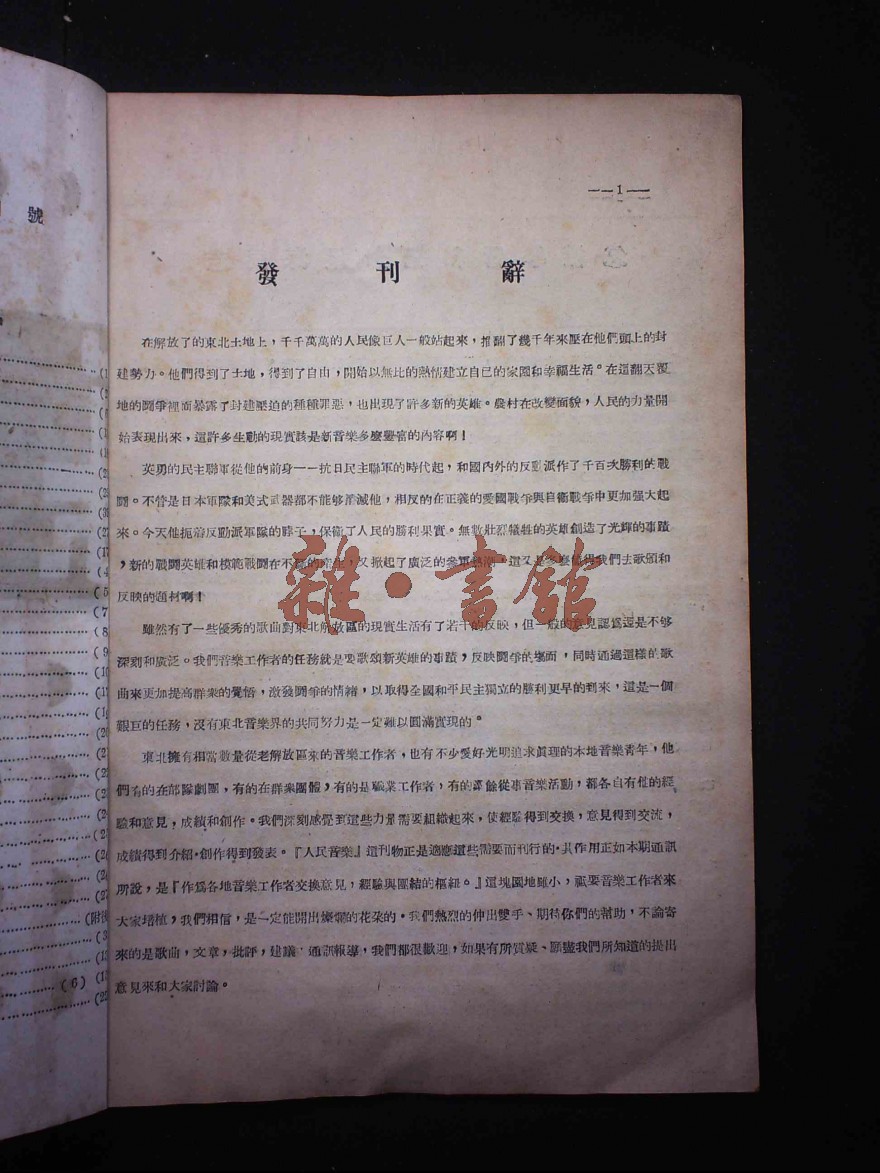 號
(6)
—1—
發刊辭
在解放了的東北土地上，千千萬萬的人民像巨人一般站起來，推翻了幾千年來壓在他們頭上的封
建勢力。他們得到了土地，得到了自由，開始以無比的熱情建立自已的家園和幸福生活。在這翻天覆
地的鬪爭裡面暴露了封建壓迫的種種罪惡，也出現了許多新的英雄。農村在改變面貌，人民的力量開
始表現出來，這許多生動的現實該是新音樂多麼豐富的內容啊！
英勇的民主聯軍從他的前身——抗日民主聯軍的時代起，和國內外的反動派作了千百次勝利的戰
鬪。不管是日本軍隊和美式武器都不能够消滅他，相反的在正義的愛國戰爭與自衛戰爭中更加强大起
來。今天他扼着反動派軍隊的脖子，保衛了人民的勝利果實。無數壯烈犧牲的英雄創造了光輝的事蹟
，新的戰鬪英雄和模範戰鬪在不斷的產生，又掀起了廣泛的參軍熱潮，這又是多麼值得我們去歌頌和
反映的題材啊！
雖然有了一些優秀的歌曲對東北解放區的現實生活有了若干的反映，但一般的意見認爲還是不够
深刻和廣泛。我們音樂工作者的任務就是要歌頌新英雄的事蹟，反映鬪爭的塲面，同時通過這樣的歌
曲來更加提高群衆的覺悟，激發鬪爭的情緒，以取得全國和平民主獨立的勝利更早的到來，這是一個
艱巨的任務，沒有東北音樂界的共同努力是一定難以圓滿實現的。
東北擁有相當數量從老解放區來的音樂工作者，也有不少愛好光明追求眞理的本地音樂青年，他
們有的在部隊劇團，有的在群衆團體，有的是職業工作者，有的業餘從事音樂活動，都各自有他的經
驗和意見，成績和創作。我們深刻感覺到這些力量需要組織起來，使經驗得到交換，意見得到交流，
成績得到介紹·創作得到發表。『人民音樂』這刊物正是適應這些需要而刊行的·其作用正如本期通訊
所說，是『作爲各地音樂工作者交換意見，經驗與團結的樞紐。』這塊園地雖小，祗要音樂工作者來
大家培植，我們相信，是一定能開出燦爛的花朶的·我們熱烈的伸出雙手、期待你們的幫助，不論寄
來的是歌曲，文章，批評，建議，通訊報導，我們都很歡迎，如果有所質疑、願盡我們所知道的提出
意見來和大家討論。
雜·書館